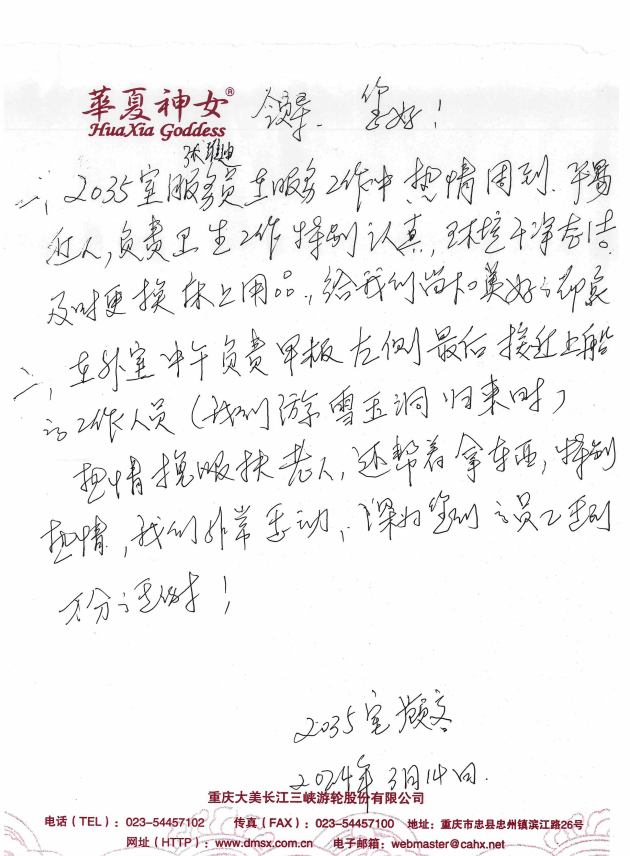 華夏神女®
HuaXia Goddess
领导. 您好！
一、2035室服务员在服务工作中热情周到.平易
近人,负责卫生工作特别认真,环境干净整洁.
及时更换床上用品.,给我们尚和美好的
二、在外室中午负责甲板左侧最后接近上船
的工作人员（我们游雪玉洞归来时）
热情搀扶老人,还帮着拿东西,特别
热情,我们非常感动,深为您们的员工感到
万分
2035室
2024年3月14日.
重庆大美长江三峡游轮股份有限公司
电话（TEL）：023-54457102 传真（FAX）：023-54457100 地址：重庆市忠县忠州镇滨江路26号
网址（HTTP）：www.dmsx.com.cn 电子邮箱：webmaster@cahx.net